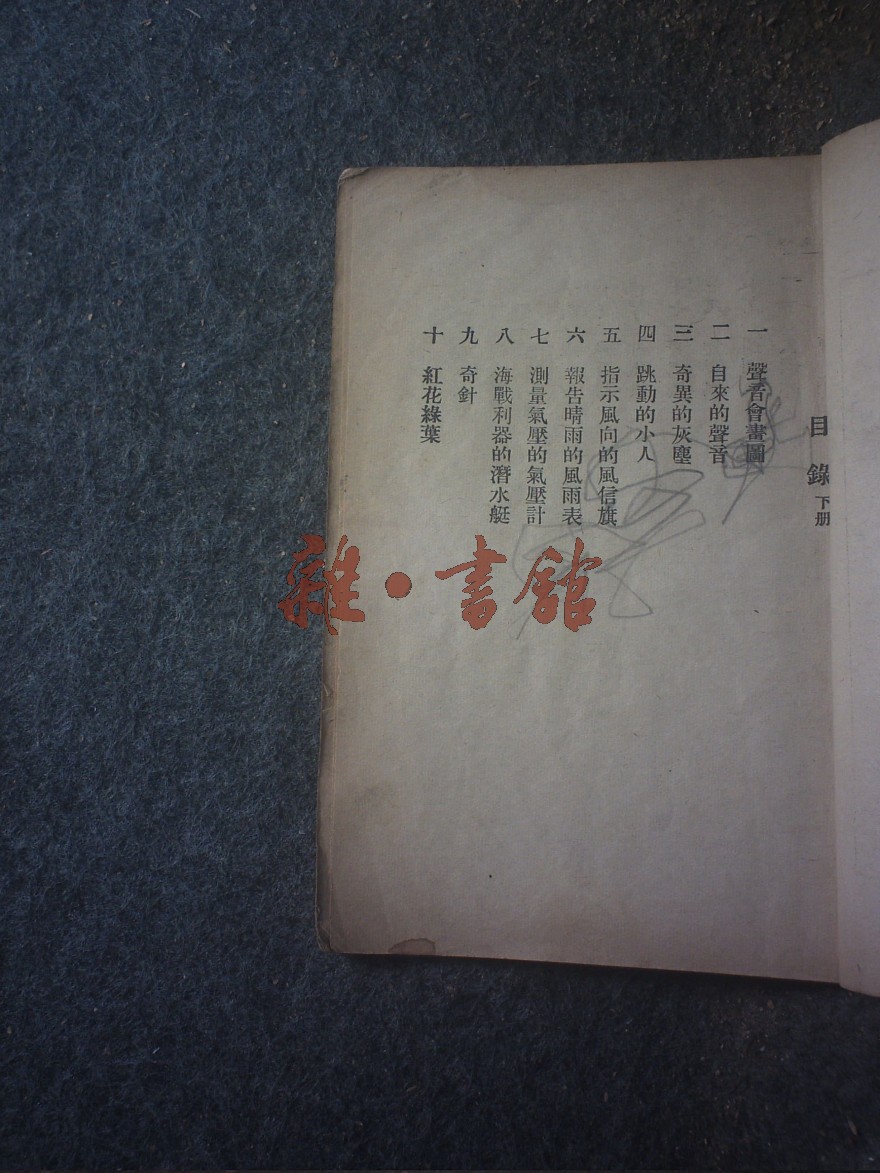 目錄 下册
一 聲音會畫圖
二 自來的聲音
三 奇異的灰塵
四 跳動的小人
五 指示風向的風信旗
六 報告晴雨的風雨表
七 測量氣壓的氣壓計
八 海戰利器的潛水艇
九 奇針
十 紅花綠葉
雜·書館